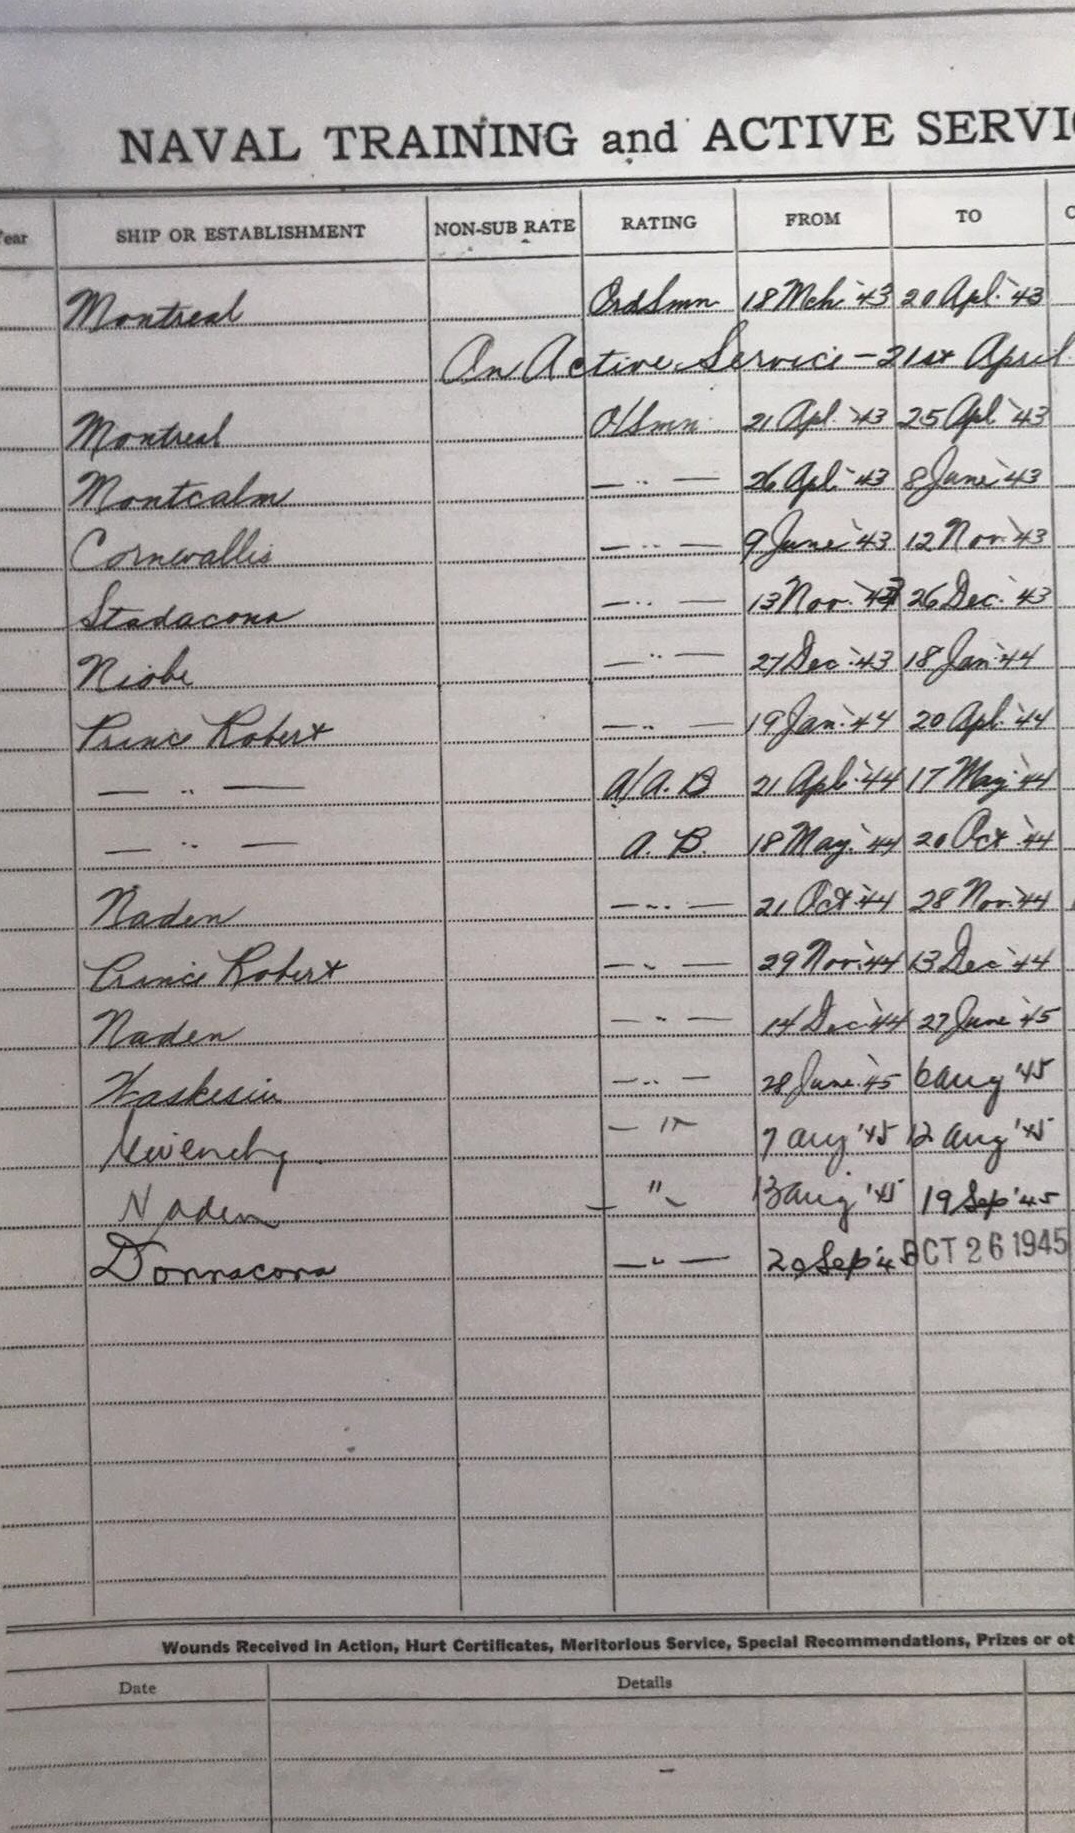 NAVAL TRAINING and ACTIVE SERVI
SHIP OR ESTABLISHMENT NON-SUB RATE RATING FROM TO
Montreal OrdSmn 18 Mch '43 20 Apl. '43
On Active Service - 21st April
Montreal O/Smn 21 Apl. '43 25 Apl '43
Montcalm — ·· — 26 Apl '43 8 June '43
Cornwallis — ·· — 9 June '43 12 Nov. '43
Stadacona — ·· — 13 Nov. '43 26 Dec. '43
Niobe — ·· — 27 Dec '43 18 Jan '44
Prince Robert — ·· — 19 Jan. '44 20 Apl. '44
— ·· — A/A.B 21 Apl. '44 17 May '44
— ·· — A.B. 18 May. '44 20 Oct '44
Naden — ·· — 21 Oct '44 28 Nov. '44
Prince Robert — ·· — 29 Nov. '44 13 Dec '44
Naden — ·· — 14 Dec '44 27 June '45
Waskesiu — ·· — 28 June '45 6 Aug '45
Givenchy — " — 7 Aug '45 12 Aug '45
Naden — " — 13 Aug '45 19 Sep '45
Donnacona — " — 20 Sep '45 OCT 26 1945
Wounds Received in Action, Hurt Certificates, Meritorious Service, Special Recommendations, Prizes or ot
Date Details